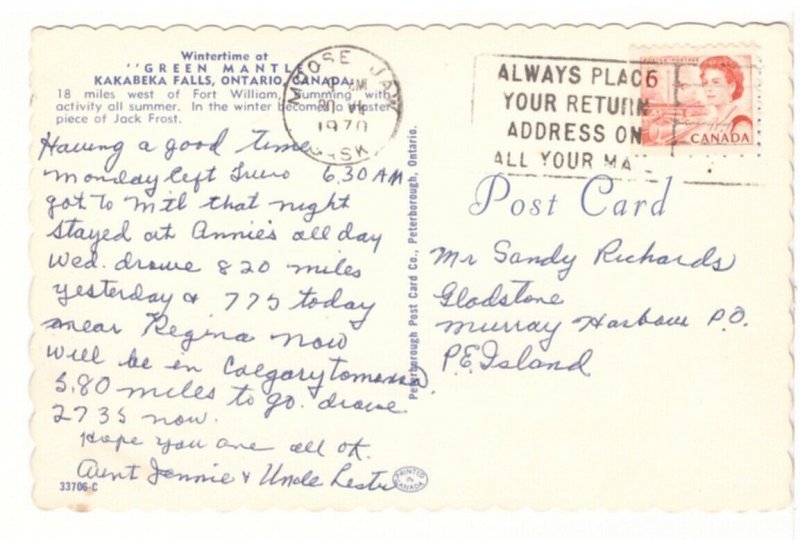 Wintertime at
"GREEN MANTLE"
KAKABEKA FALLS, ONTARIO, CANADA
18 miles west of Fort William, humming with
activity all summer. In the winter becomes a master
piece of Jack Frost.
Having a good time
Monday left Truro 6.30 AM
got to Mtl that night
stayed at Annie's all day
Wed. drove 820 miles
yesterday & 775 today
near Regina now
will be in Calgary tomorrow
580 miles to go. drove
2735 now.
Hope you are all ok.
Aunt Jennie & Uncle Lester
33706-C
PRINTED IN CANADA
Peterborough Post Card Co., Peterborough, Ontario.
MOOSE JAW
AM
VII
1970
SASK
ALWAYS PLACE
YOUR RETURN
ADDRESS ON
ALL YOUR MA
6
CANADA
Post Card
Mr Sandy Richards
Gladstone
Murray Harbour P.O.
P.E. Island